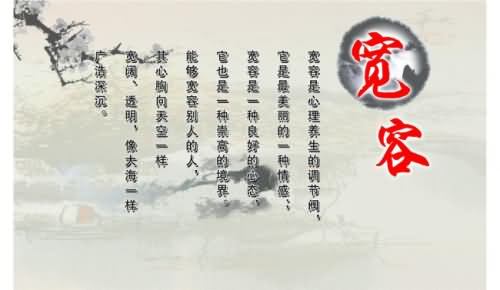 宽容
宽容是心理养生的调节阀，
它是最美丽的一种情感，
宽容是一种良好的心态，
它也是一种崇高的境界。
能够宽容别人的人，
其心胸向天空一样
宽阔、透明，像大海一样
广浩深沉。